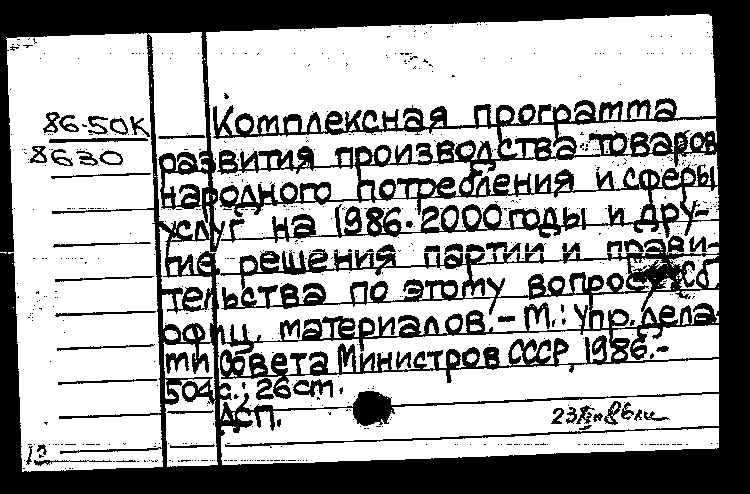 86-50К
8630
Комплексная программа
развития производства товаров
народного потребления и сферы
услуг на 1986-2000 годы и дру-
гие решения партии и прави-
тельства по этому вопросу: Сб.
офиц. материалов. – М.: Упр. дела-
ми Совета Министров СССР, 1986.-
504 с.; 26 см.
ДСП.
13